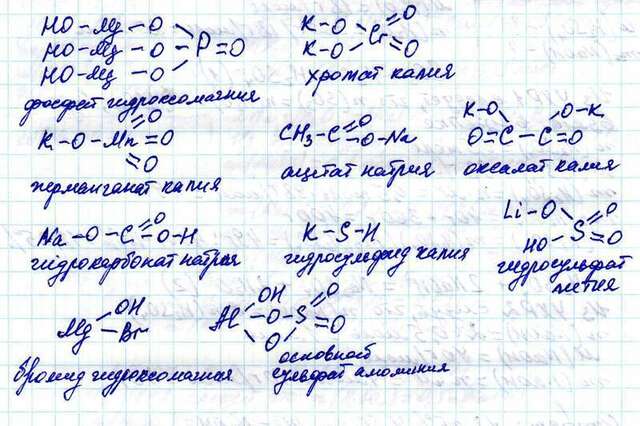 HO-Mg-O
HO-Mg-O P=O
HO-Mg-O
фосфат гидроксомагния
K-O Cr=O
K-O =O
хромат калия
K-O-Mn=O
=O
=O
перманганат калия
CH₃-C=O
O-Na
ацетат натрия
K-O O-K
O=C-C=O
оксалат калия
Na-O-C=O
O-H
гідрокарбонат натрия
K-S-H
гидросульфид калия
Li-O =O
HO S=O
гидросульфат
лития
Mg-OH
-Br
бромид гидроксомагния
Al-OH
-O-S=O
O =O
основной
сульфат алюминия